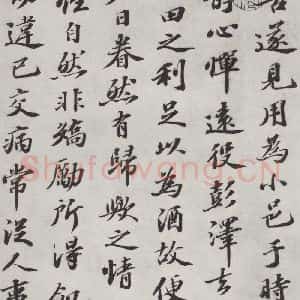 遂見用為小邑于時
心憚遠役彭澤去
田之利足以為酒故便
日眷然有歸歟之情
性自然非矯勵所得
違己交病常從人事
Shufawang.CN